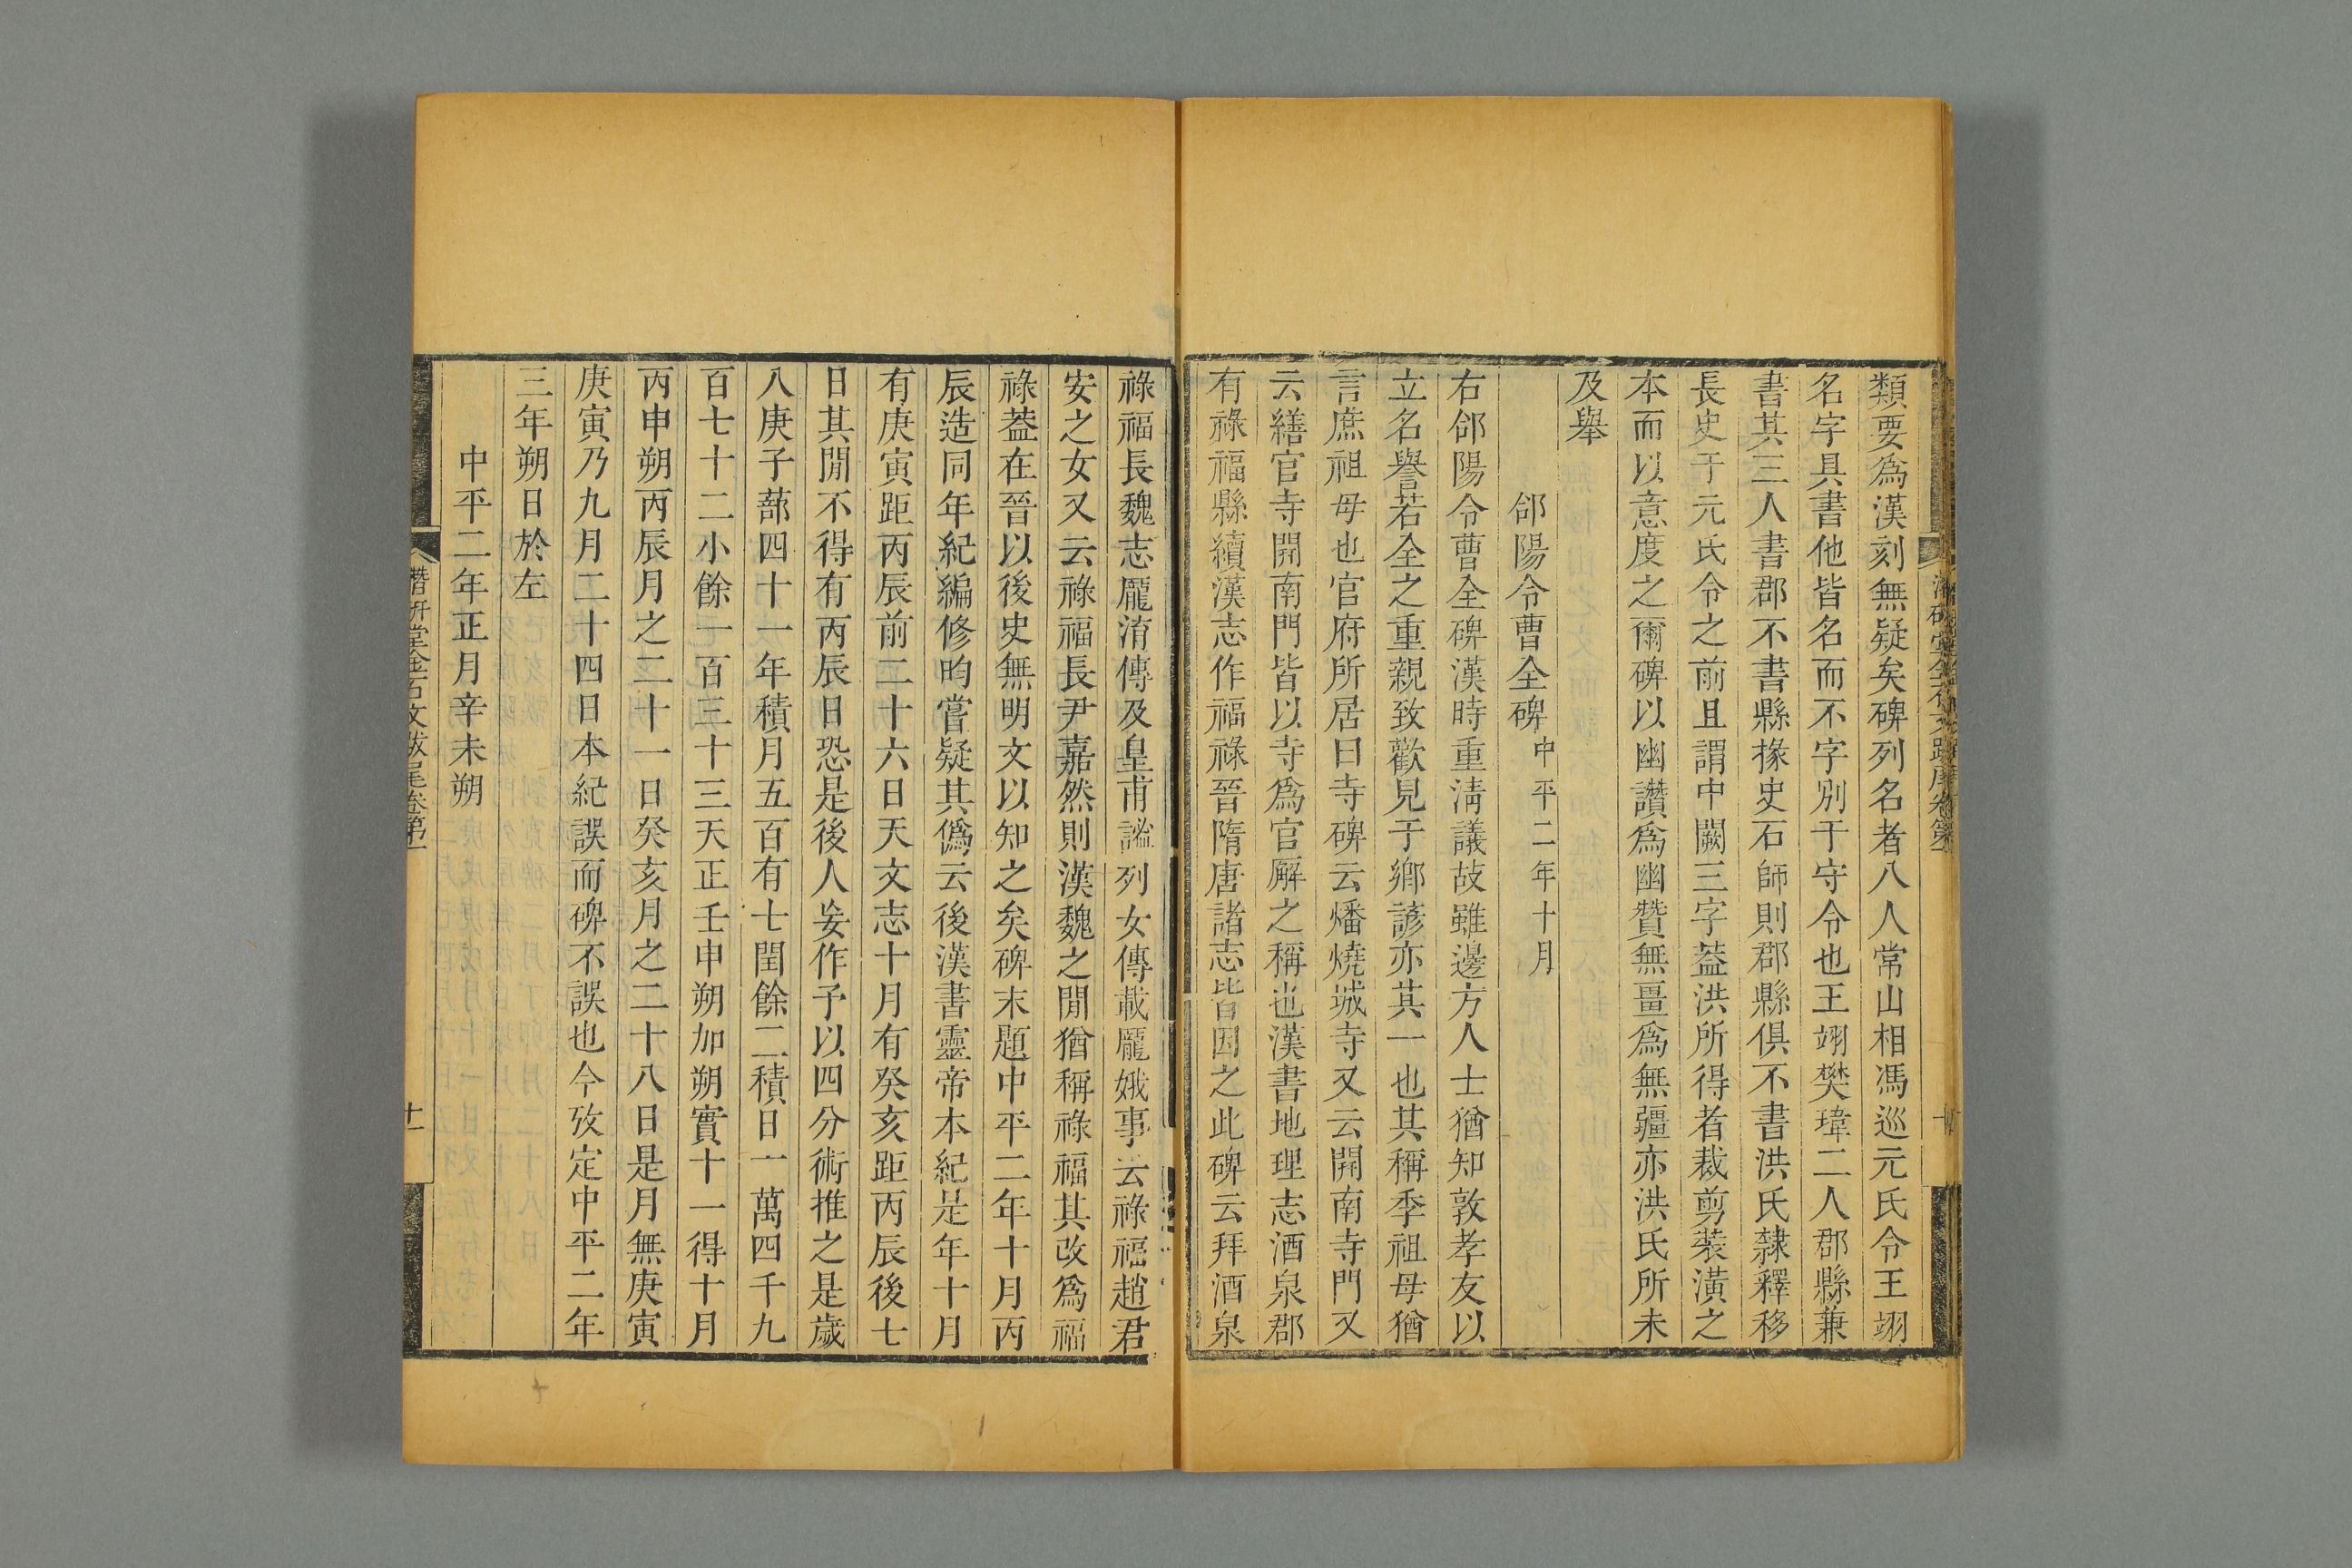 類要爲漢刻無疑矣碑列名者八人常山相馮巡元氏令王翊
名字具書他皆名而不字別于守令也王翊樊瑋二人郡縣兼
書其三人書郡不書縣掾史石師則郡縣俱不書洪氏隸釋移
長史于元氏令之前且謂中闕三字葢洪所得者裁剪裝潢之
本而以意度之爾碑以幽讚爲幽贊無畺爲無疆亦洪氏所未
及舉
郃陽令曹全碑中平二年十月
右郃陽令曹全碑漢時重淸議故雖邊方人士猶知敦孝友以
立名譽若全之重親致歡見于鄉諺亦其一也其稱季祖母猶
言庶祖母也官府所居曰寺碑云燔燒城寺又云開南寺門又
云繕官寺開南門皆以寺爲官廨之稱也漢書地理志酒泉郡
有祿福縣續漢志作福祿晉隋唐諸志皆因之此碑云拜酒泉
祿福長魏志龐淯傳及皇甫謐列女傳載龐娥事云祿福趙君
安之女又云祿福長尹嘉然則漢魏之閒猶稱祿福其改爲福
祿葢在晉以後史無明文以知之矣碑末題中平二年十月丙
辰造同年紀編修昀嘗疑其僞云後漢書靈帝本紀是年十月
有庚寅距丙辰前二十六日天文志十月有癸亥距丙辰後七
日其閒不得有丙辰日恐是後人妄作予以四分術推之是歲
八庚子蔀四十一年積月五百有七閏餘二積日一萬四千九
百七十二小餘一百三十三天正壬申朔加朔實十一得十月
丙申朔丙辰月之二十一日癸亥月之二十八日是月無庚寅
庚寅乃九月二十四日本紀誤而碑不誤也今攷定中平二年
三年朔日於左
中平二年正月辛未朔
潛研堂金石文跋尾卷第一
十一